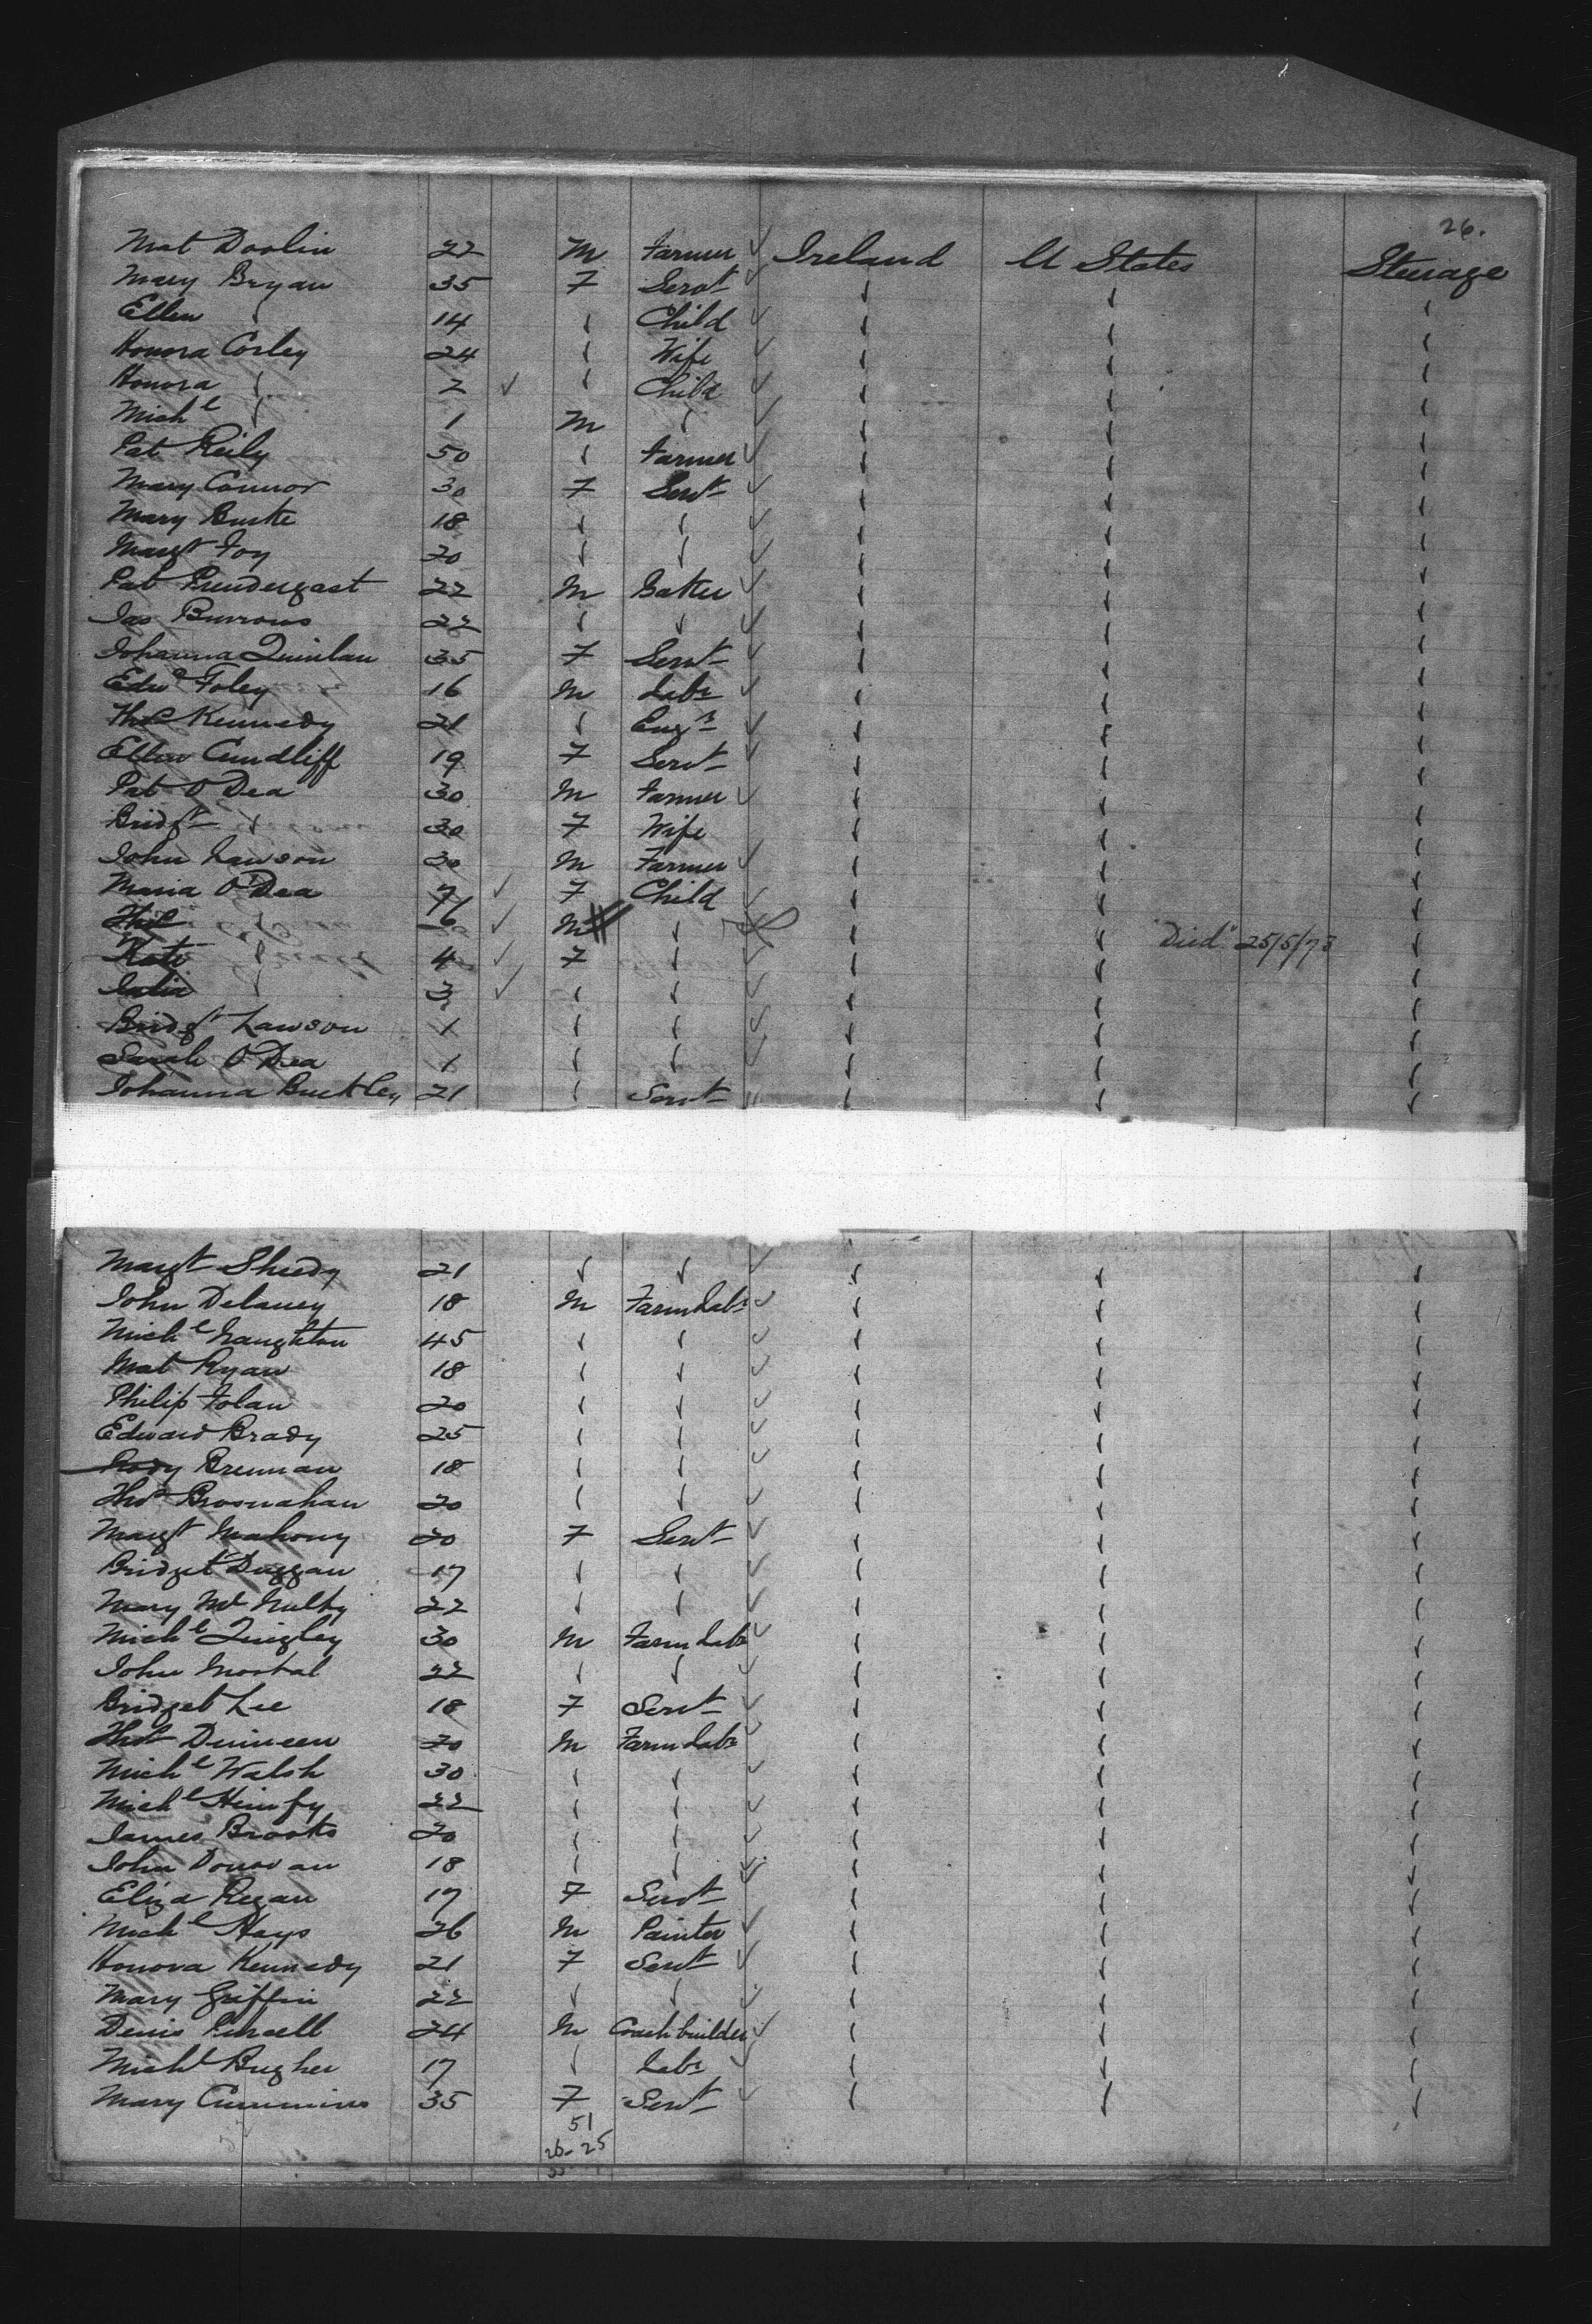 26.
Mat Doolin 22 M Farmer Ireland U States Steerage
Mary Bryan 35 F Servt
Ellen 14 Child
Honora Corley 24 Wife
Honora 2 Child
Michl 1 M
Pat Reily 50 Farmer
Mary Connor 30 F Servt
Mary Burke 18
Margt Foy 20
Pat Prendergast 22 M Baker
Jas Burrows 22
Johanna Quinlan 35 F Servt
Edwd Foley 16 M Labr
Thos Kennedy 21 Engr
Ellen Cundliff 19 F Servt
Pat O'Dea 30 M Farmer
Bridgt 30 F Wife
John Lawson 30 M Farmer
Maria O'Dea 7 F Child
Thos 6 M Died 25/5/73
Kate 4 F
Julia 3
Bridgt Lawson 1
Sarah O'Dea 1
Johanna Buckley 21 Servt
Margt Sheedy 21
John Delaney 18 M Farm Labr
Michl Naughton 45
Mat Ryan 18
Philip Folan 20
Edward Brady 25
Rody Brennan 18
Thos Brosnahan 20
Margt Mahony 20 F Servt
Bridget Duggan 17
Mary McNulty 22
Michl Quigley 30 M Farm Labr
John 22
Bridget Lee 18 F Servt
Thos Dinneen 20 M Farm Labr
Michl Walsh 30
Michl 22
James Brooks 20
John Donovan 18
Eliza Regan 17 F Servt
Michl Hays 26 M Painter
Honora Kennedy 21 F Servt
Mary Griffin 22
Denis Purcell 24 M Coachbuilder
Michl 17 Labr
Mary Cummins 35 F Servt
51
26-25